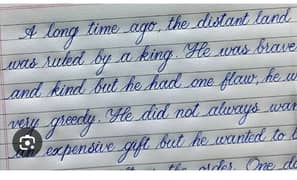 A long time ago, the distant land
was ruled by a king. He was brave
and kind but he had one flaw, he w
very greedy. He did not always wan
an expensive gift but he wanted to b
the order. One da